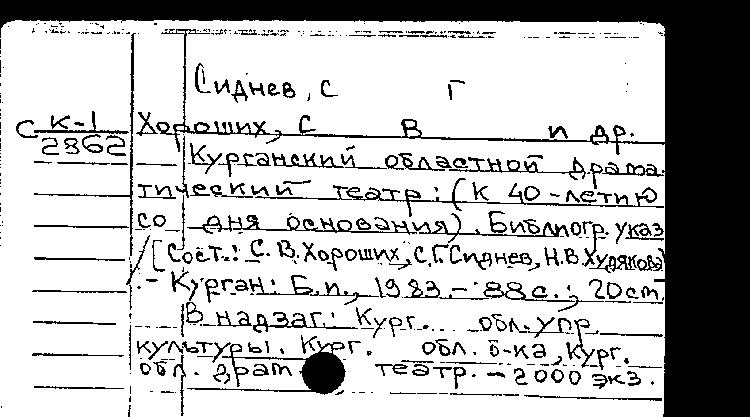 Сиднев, С Г
С К-1 Хороших, С В и др.
2862
Курганский областной драма-
тический театр: (К 40-летию
со дня основания). Библиогр. указ
/[Сост.: С.В.Хороших, С.Г.Сиднев, Н.В.Худякова]
- Курган: Б.и., 1983.- 88 с.; 20 см.
В надзаг.: Кург. обл. упр.
культуры. Кург. обл. б-ка, Кург.
обл. драм театр. - 2000 экз.